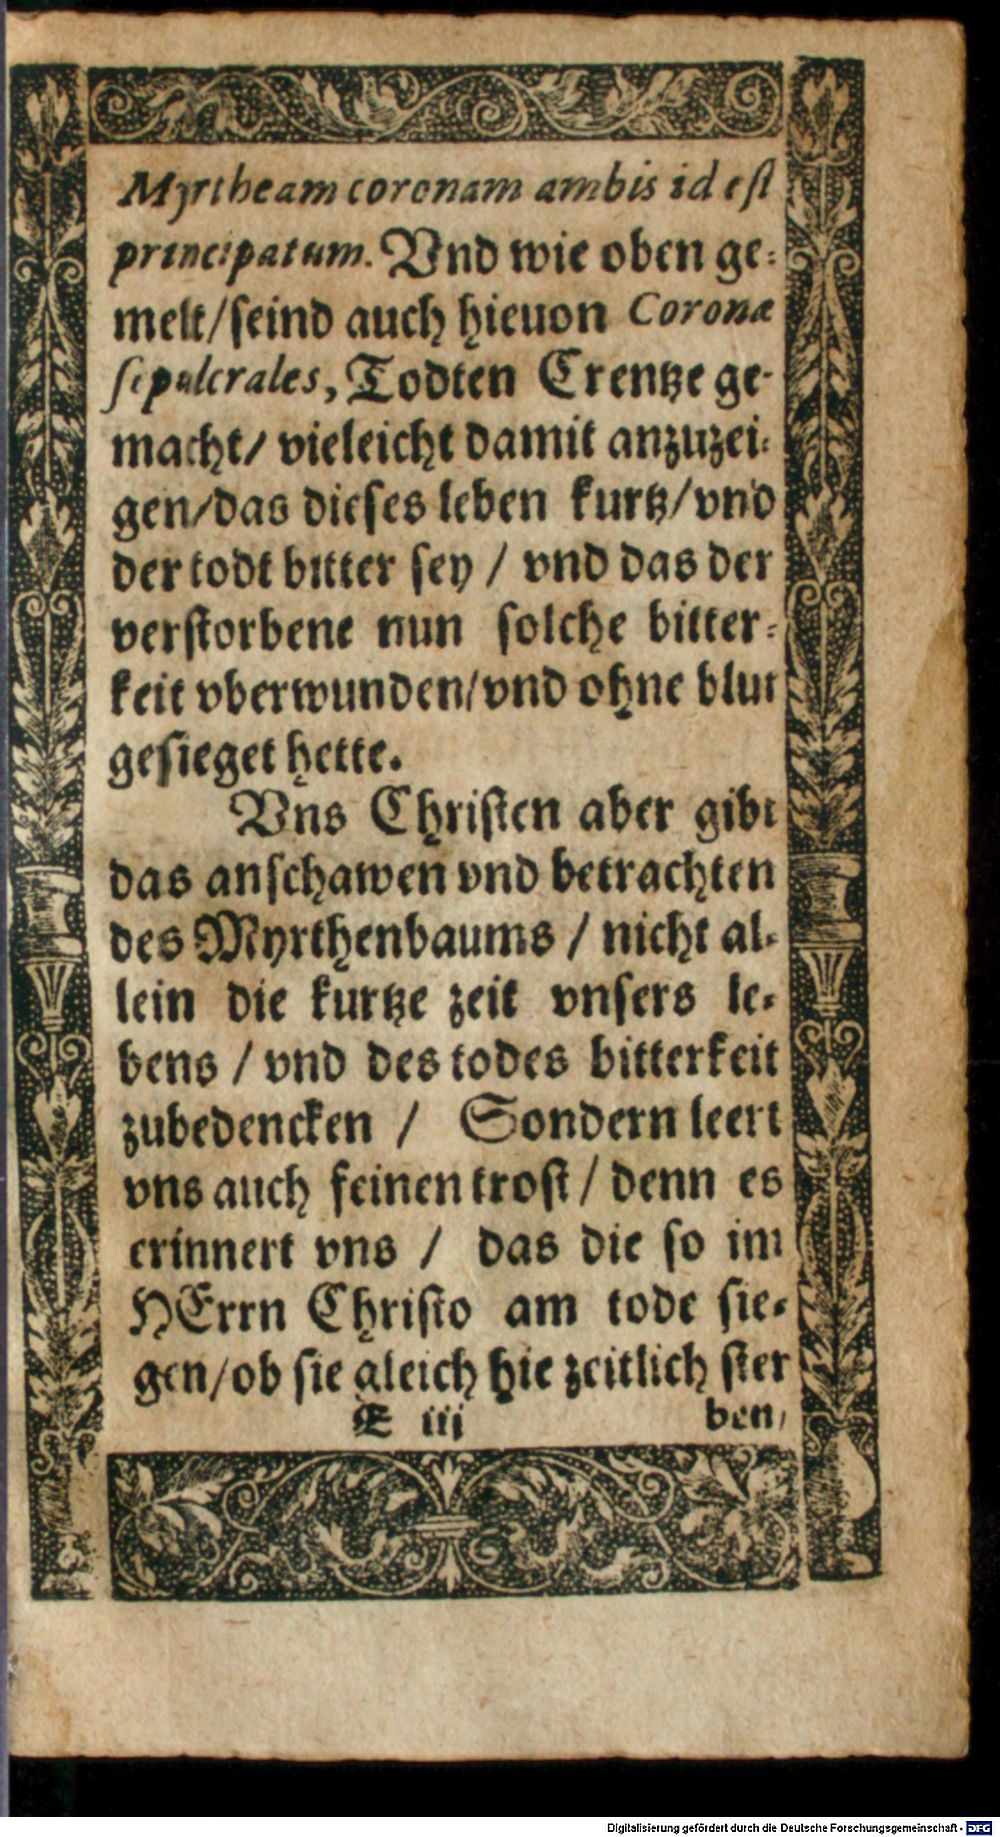 Myrtheam coronam ambis id est
principatum. Vnd wie oben ge-
melt/seind auch hieuon Coronæ
sepulcrales, Todten Crentze ge-
macht/ vieleicht damit anzuzei-
gen/das dieses leben kurtz/vnd
der todt bitter sey / vnd das der
verstorbene nun solche bitter-
keit vberwunden/vnd ohne blut
gesieget hette.
Vns Christen aber gibt
das anschawen vnd betrachten
des Myrthenbaums / nicht al-
lein die kurtze zeit vnsers le-
bens / vnd des todes bitterkeit
zubedencken / Sondern leert
vns auch feinen trost / denn es
erinnert vns / das die so im
HErrn Christo am tode sie-
gen/ob sie gleich hie zeitlich ster
E iij ben/
Digitalisierung gefördert durch die Deutsche Forschungsgemeinschaft - DFG